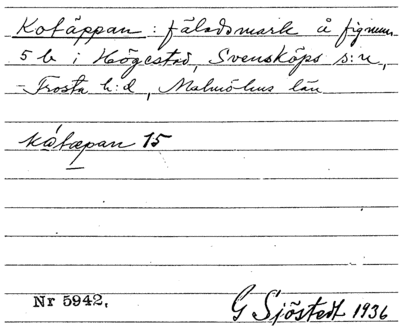 Kotäppan: fäladsmark å fignum
5 b i Högestad, Svensköps s:n,
Frosta h:d, Malmöhus län
kátæpan 15
Nr 5942. G Sjöstedt 1936